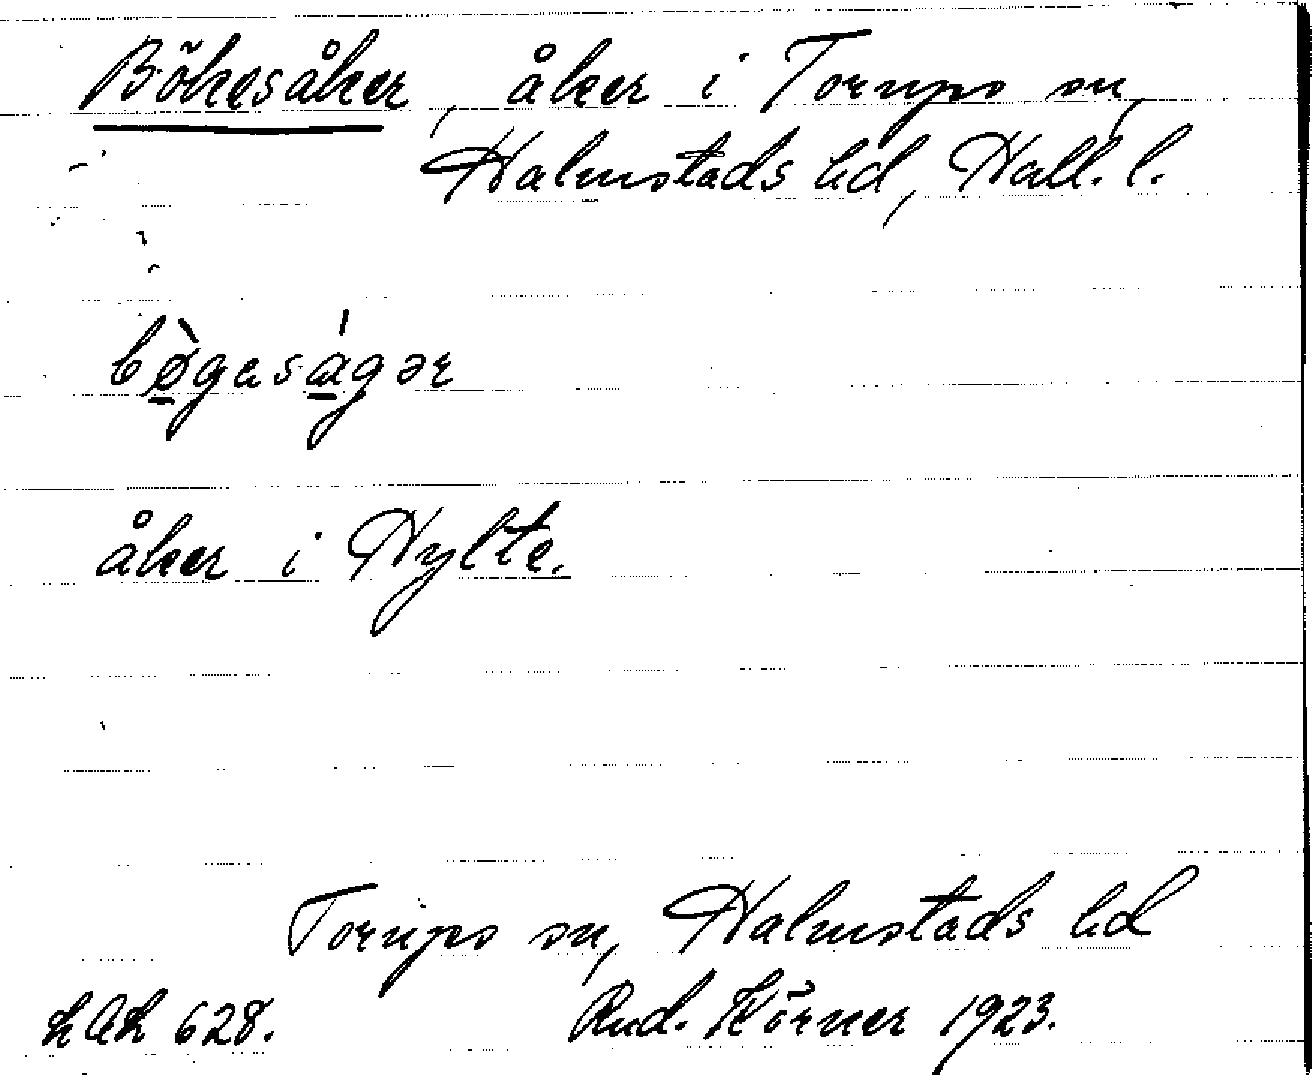 Bökesåker, åker i Torups sn,
Halmstads hd, Hall. l.
bø̀geságər
åker i Hylte.
Torups sn, Halmstads hd
628. Rud. Körner 1923.